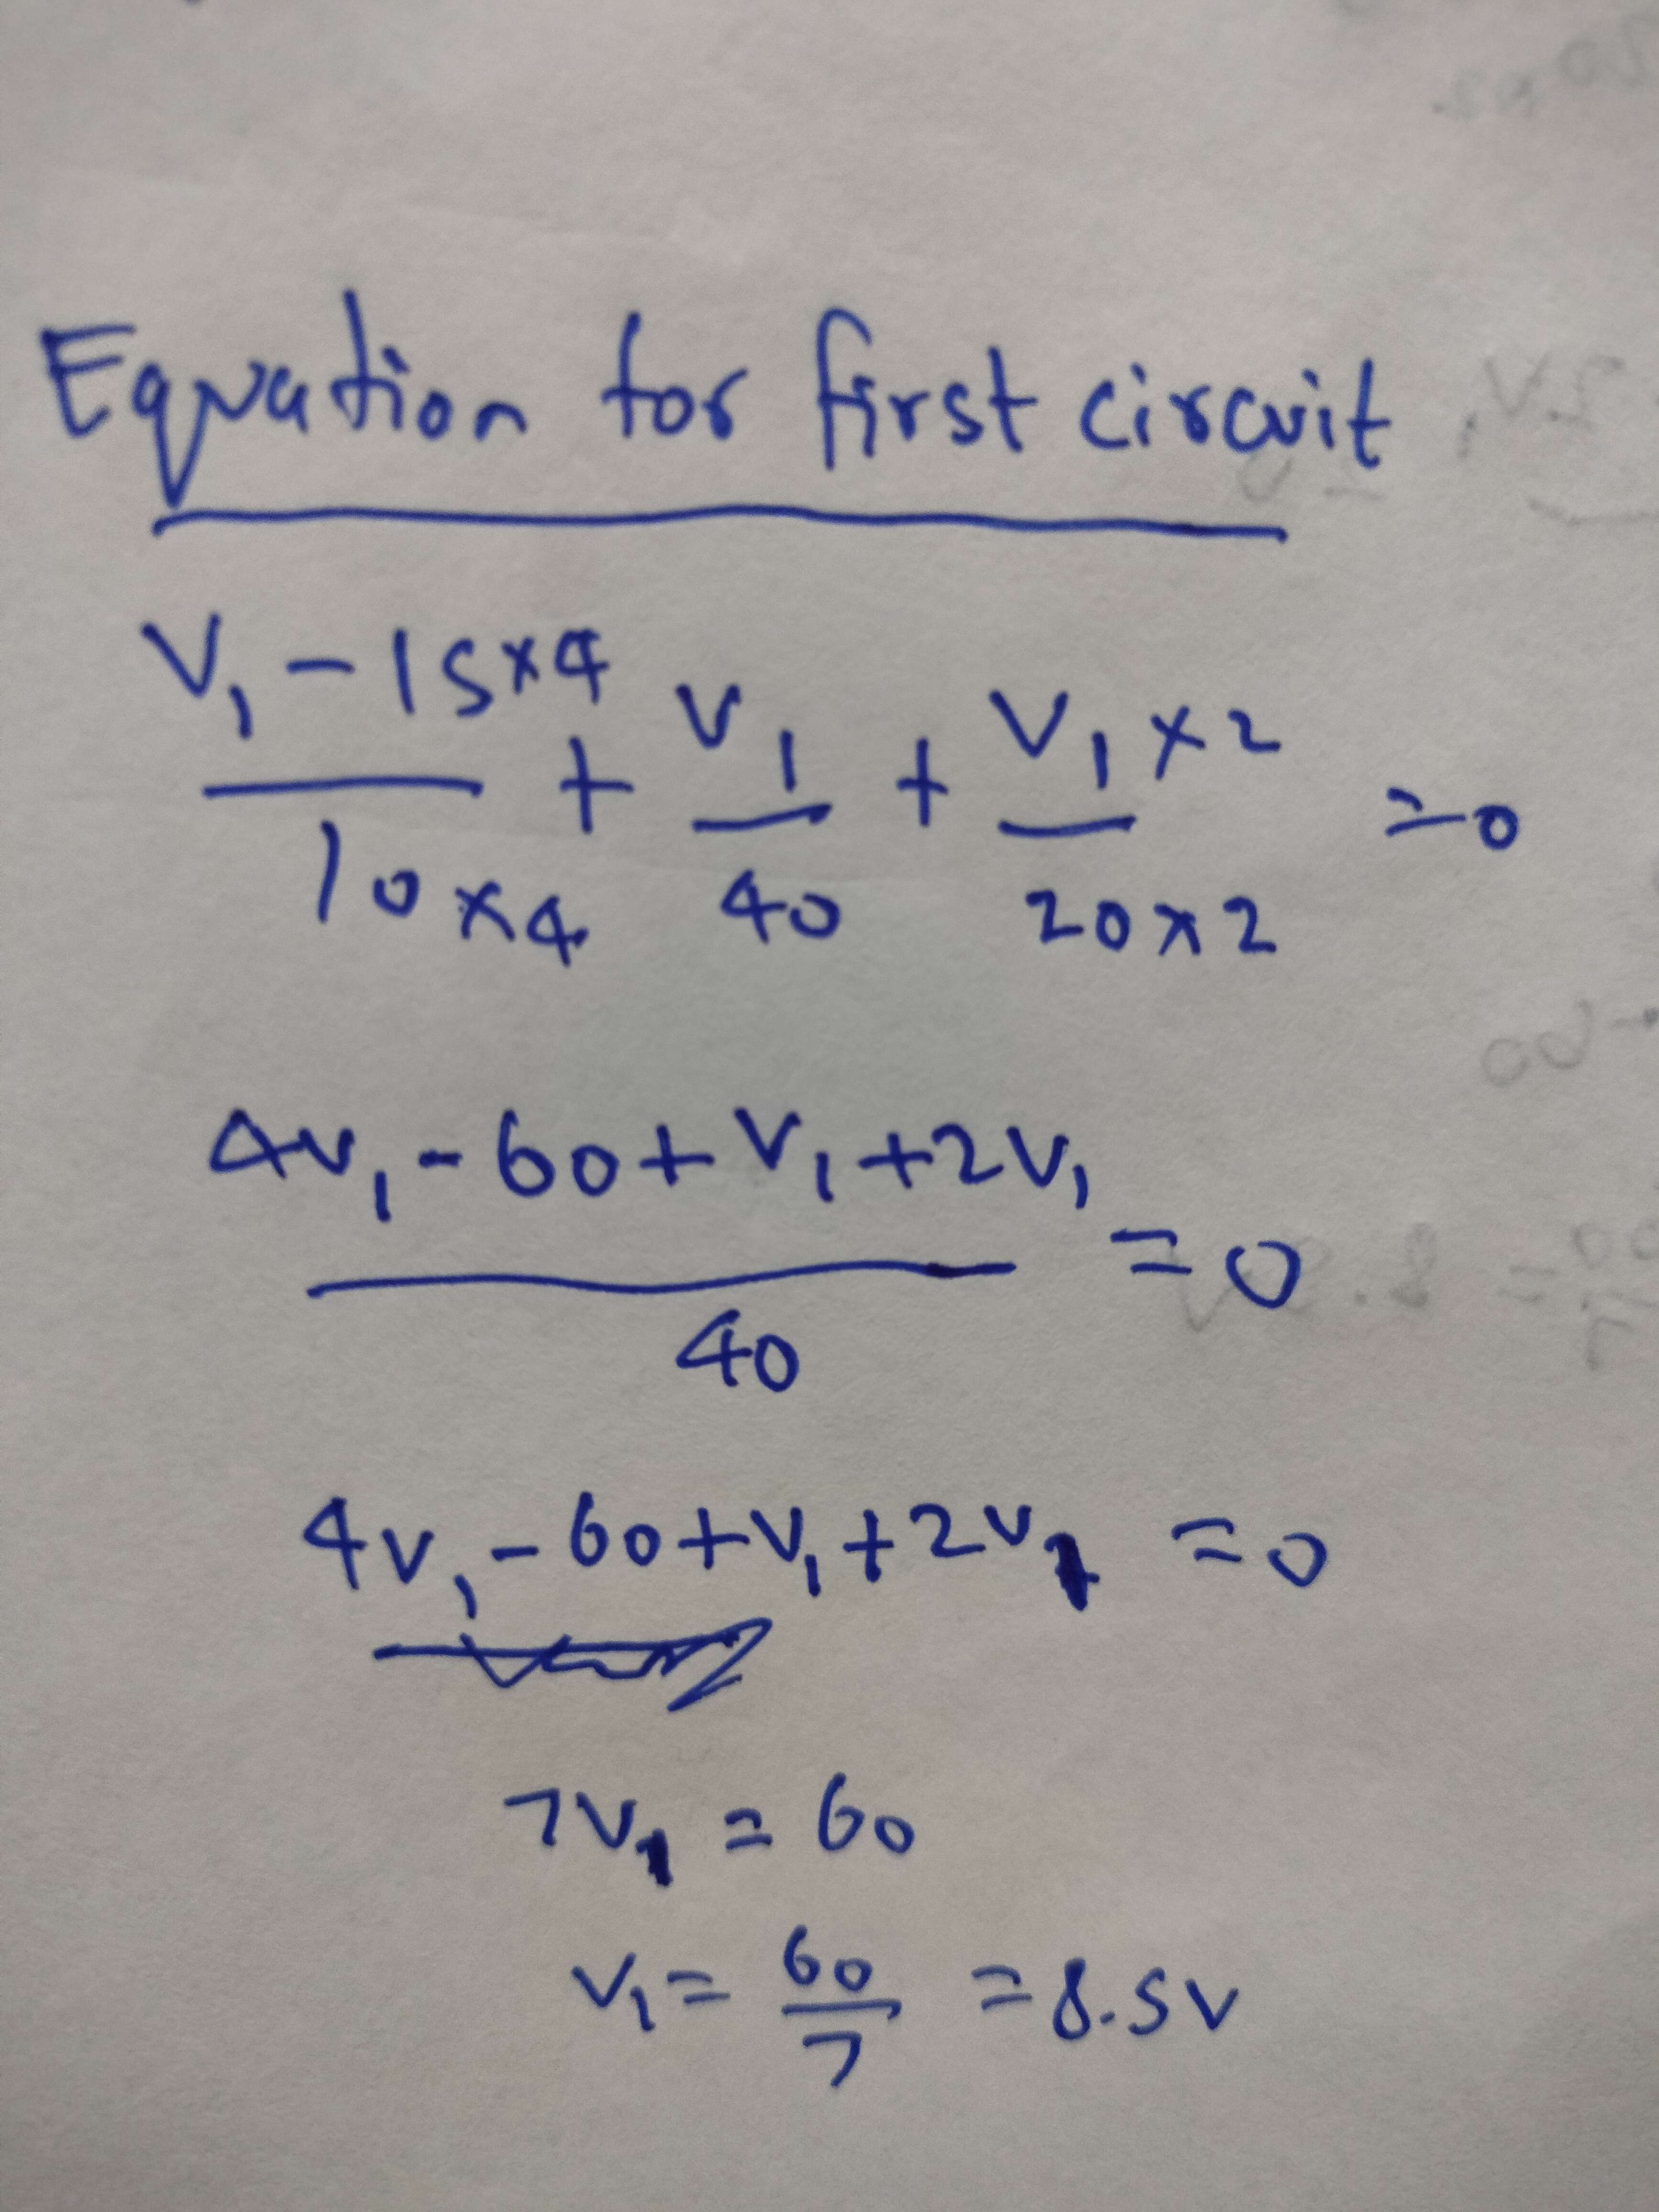 Equation for first circuit
V₁ - 15×4 / 10×4 + V₁ / 40 + V₁×2 / 20×2 = 0
4V₁ - 60 + V₁ + 2V₁ / 40 = 0
4V₁ - 60 + V₁ + 2V₁ = 0
7V₁ = 60
V₁ = 60 / 7 = 8.5V